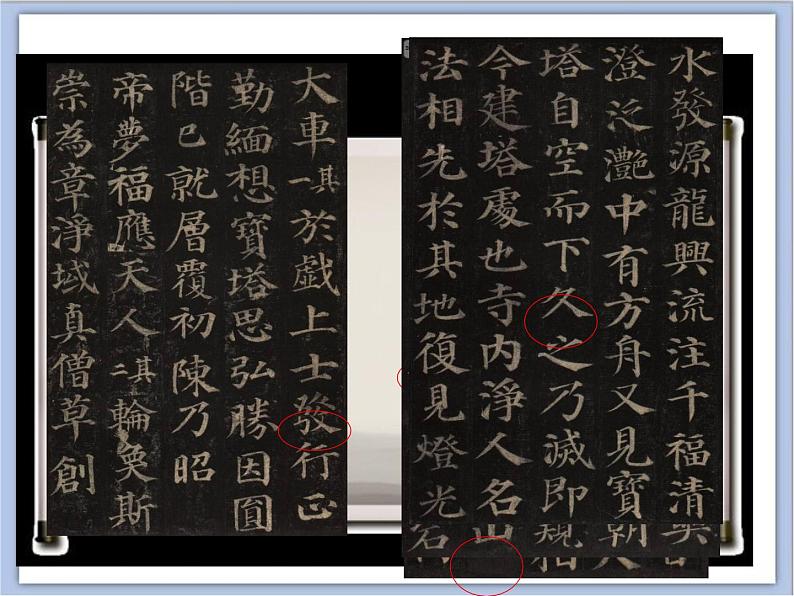 大車其一於戲上士發行正
勤緬想寶塔思弘勝因圓
階已就層覆初陳乃昭
帝夢福應天人其二輪奐斯
崇為章淨域真僧草創
水發源龍興流注千福清
澄泛灧中有方身又見寶
塔自空而下久之乃滅即
今建塔處也寺內淨人名
法相先於其地復見燈光